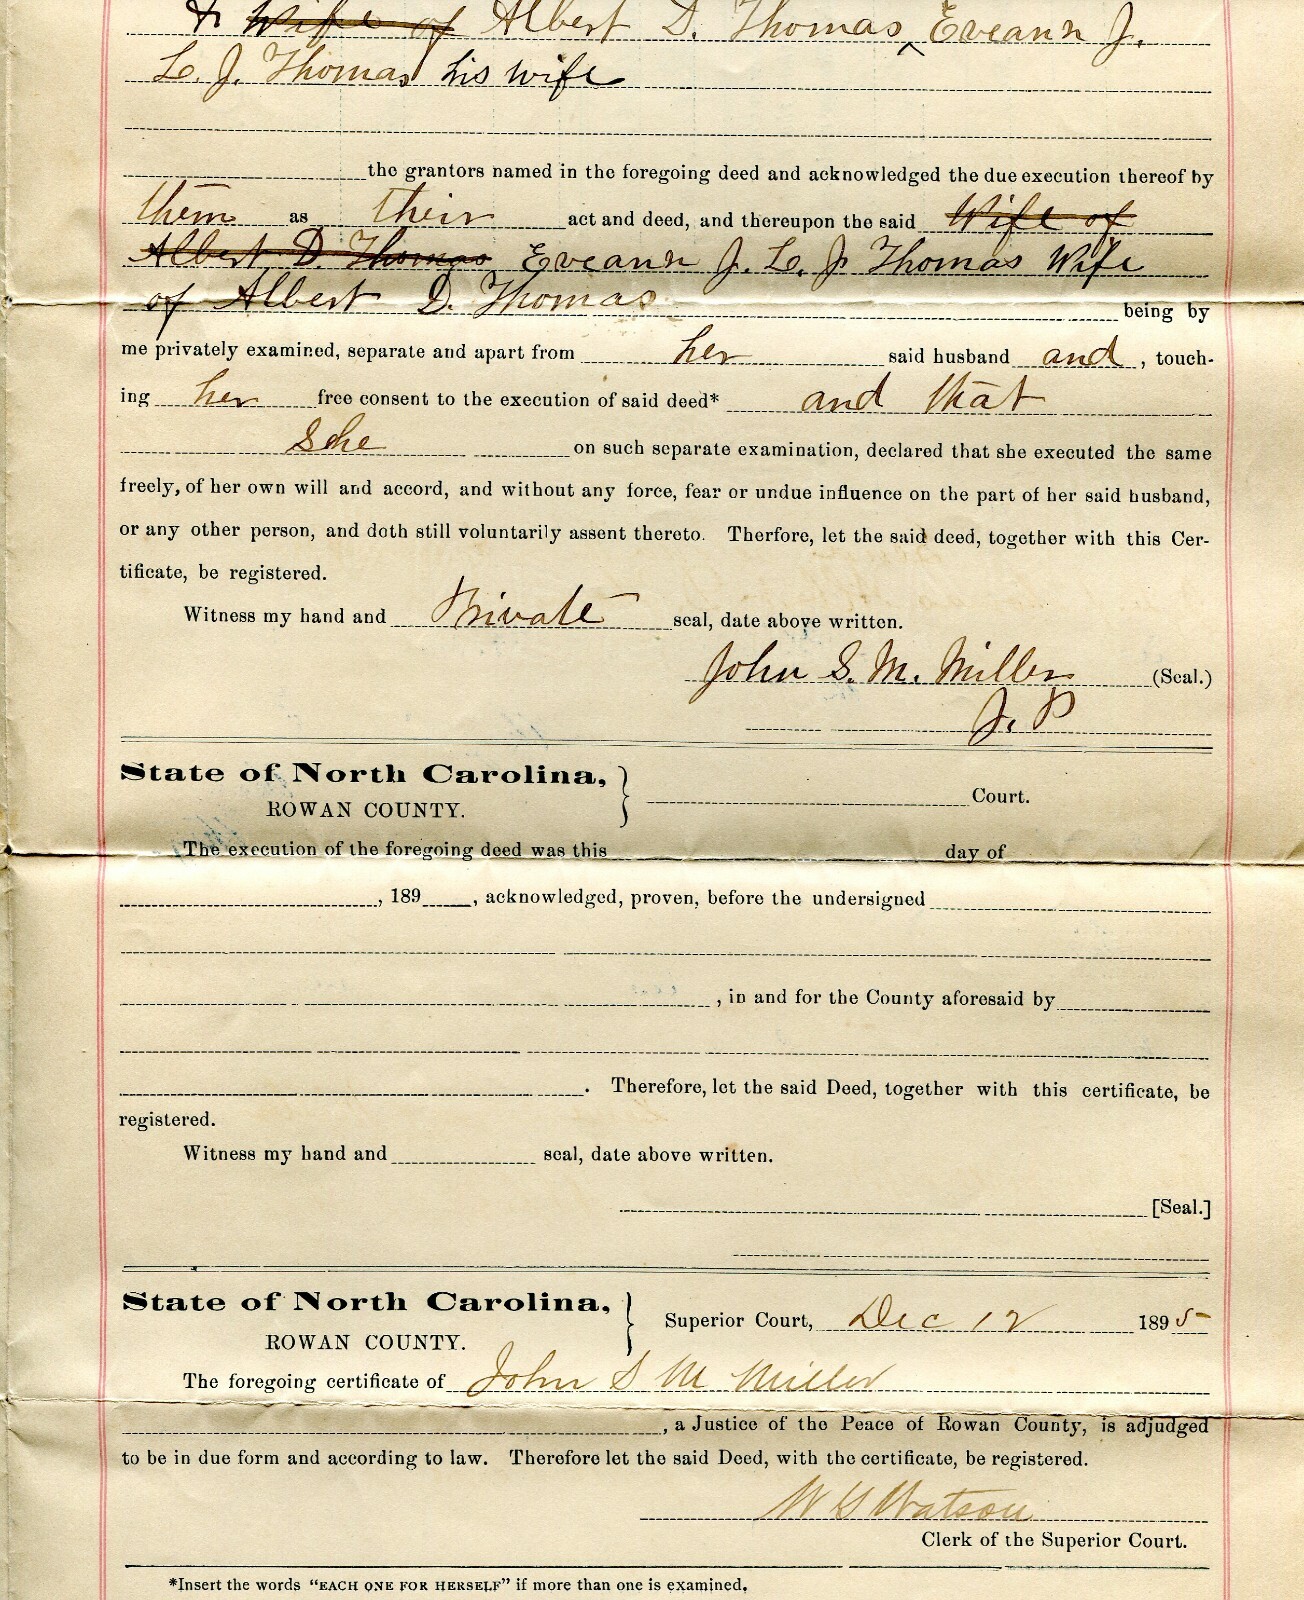 & Wife of Albert D. Thomas, Eveann J.
L. J. Thomas his wife
the grantors named in the foregoing deed and acknowledged the due execution thereof by
them as their act and deed, and thereupon the said Wife of
Albert D. Thomas Eveann J. L. J Thomas Wife
of Albert D. Thomas being by
me privately examined, separate and apart from her said husband and, touch-
ing her free consent to the execution of said deed* and that
She on such separate examination, declared that she executed the same
freely, of her own will and accord, and without any force, fear or undue influence on the part of her said husband,
or any other person, and doth still voluntarily assent thereto. Therfore, let the said deed, together with this Cer-
tificate, be registered.
Witness my hand and Private seal, date above written.
John S. M. Miller (Seal.)
J. P
State of North Carolina, } Court.
ROWAN COUNTY.
The execution of the foregoing deed was this day of
, 189 , acknowledged, proven, before the undersigned
, in and for the County aforesaid by
. Therefore, let the said Deed, together with this certificate, be
registered.
Witness my hand and seal, date above written.
[Seal.]
State of North Carolina, } Superior Court, Dec 12 1895
ROWAN COUNTY.
The foregoing certificate of John S M Miller
, a Justice of the Peace of Rowan County, is adjudged
to be in due form and according to law. Therefore let the said Deed, with the certificate, be registered.
W G Watson
Clerk of the Superior Court.
*Insert the words "EACH ONE FOR HERSELF" if more than one is examined.